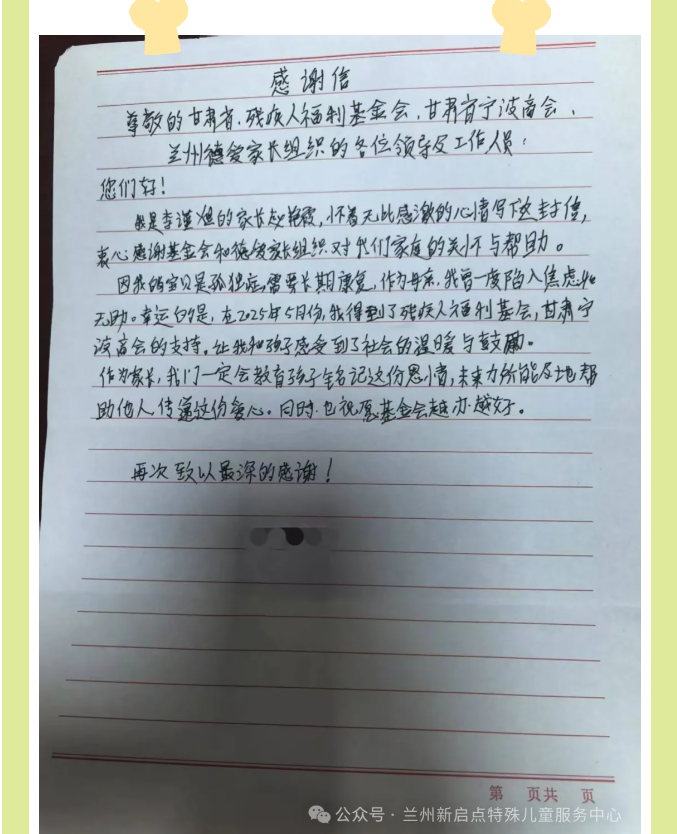 感谢信
尊敬的甘肃省残疾人福利基金会、甘肃省宁波商会、
兰州德爱家长组织的各位领导及工作人员：
您们好！
我是李谨旭的家长赵艳霞，怀着无比感激的心情写下这封信，
衷心感谢基金会和德爱家长组织对我们家庭的关怀与帮助。
因我的宝贝是孤独症，需要长期康复，作为母亲，我曾一度陷入焦虑和
无助。幸运的是，在2025年5月份，我得到了残疾人福利基金会，甘肃宁
波商会的支持。让我和孩子感受到了社会的温暖与鼓励。
作为家长，我们一定会教育孩子铭记这份恩情，未来力所能及地帮
助他人传递这份爱心。同时也祝愿基金会越办越好。
再次致以最深的感谢！
第 页共 页
公众号·兰州新启点特殊儿童服务中心